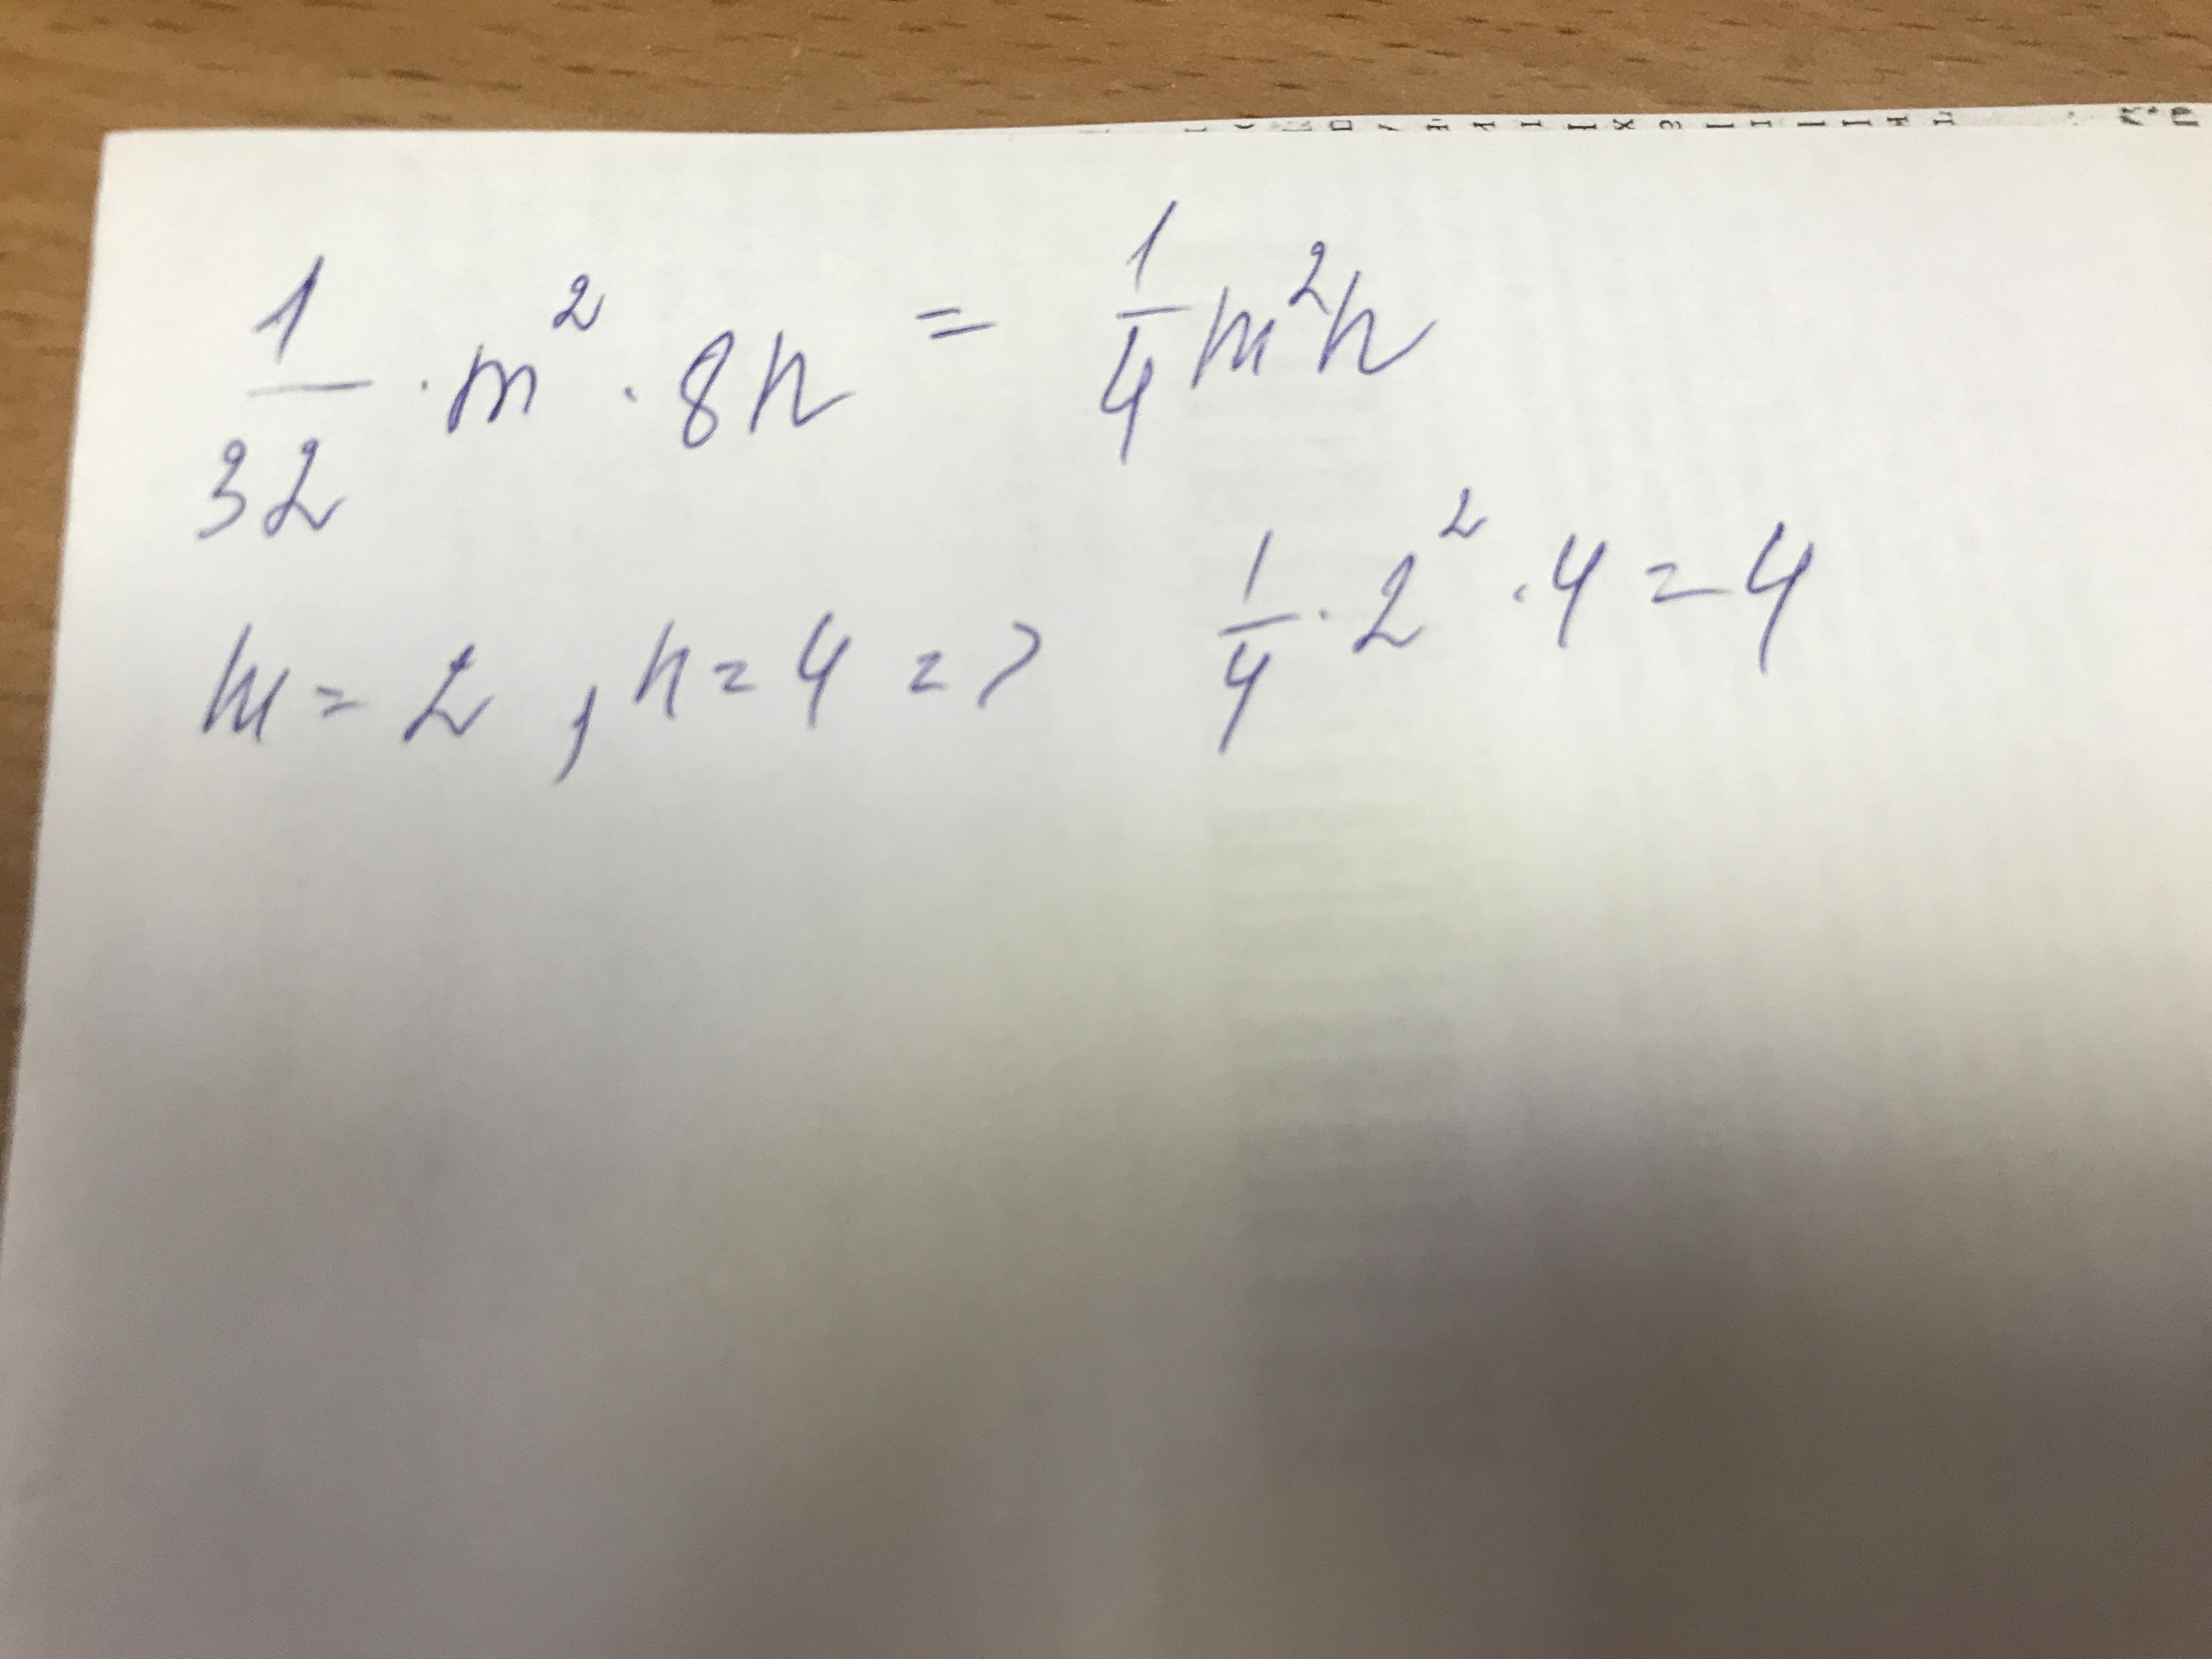 1/32 · m² · 8n = 1/4 m²n
m = 2, n = 4 => 1/4 · 2² · 4 = 4